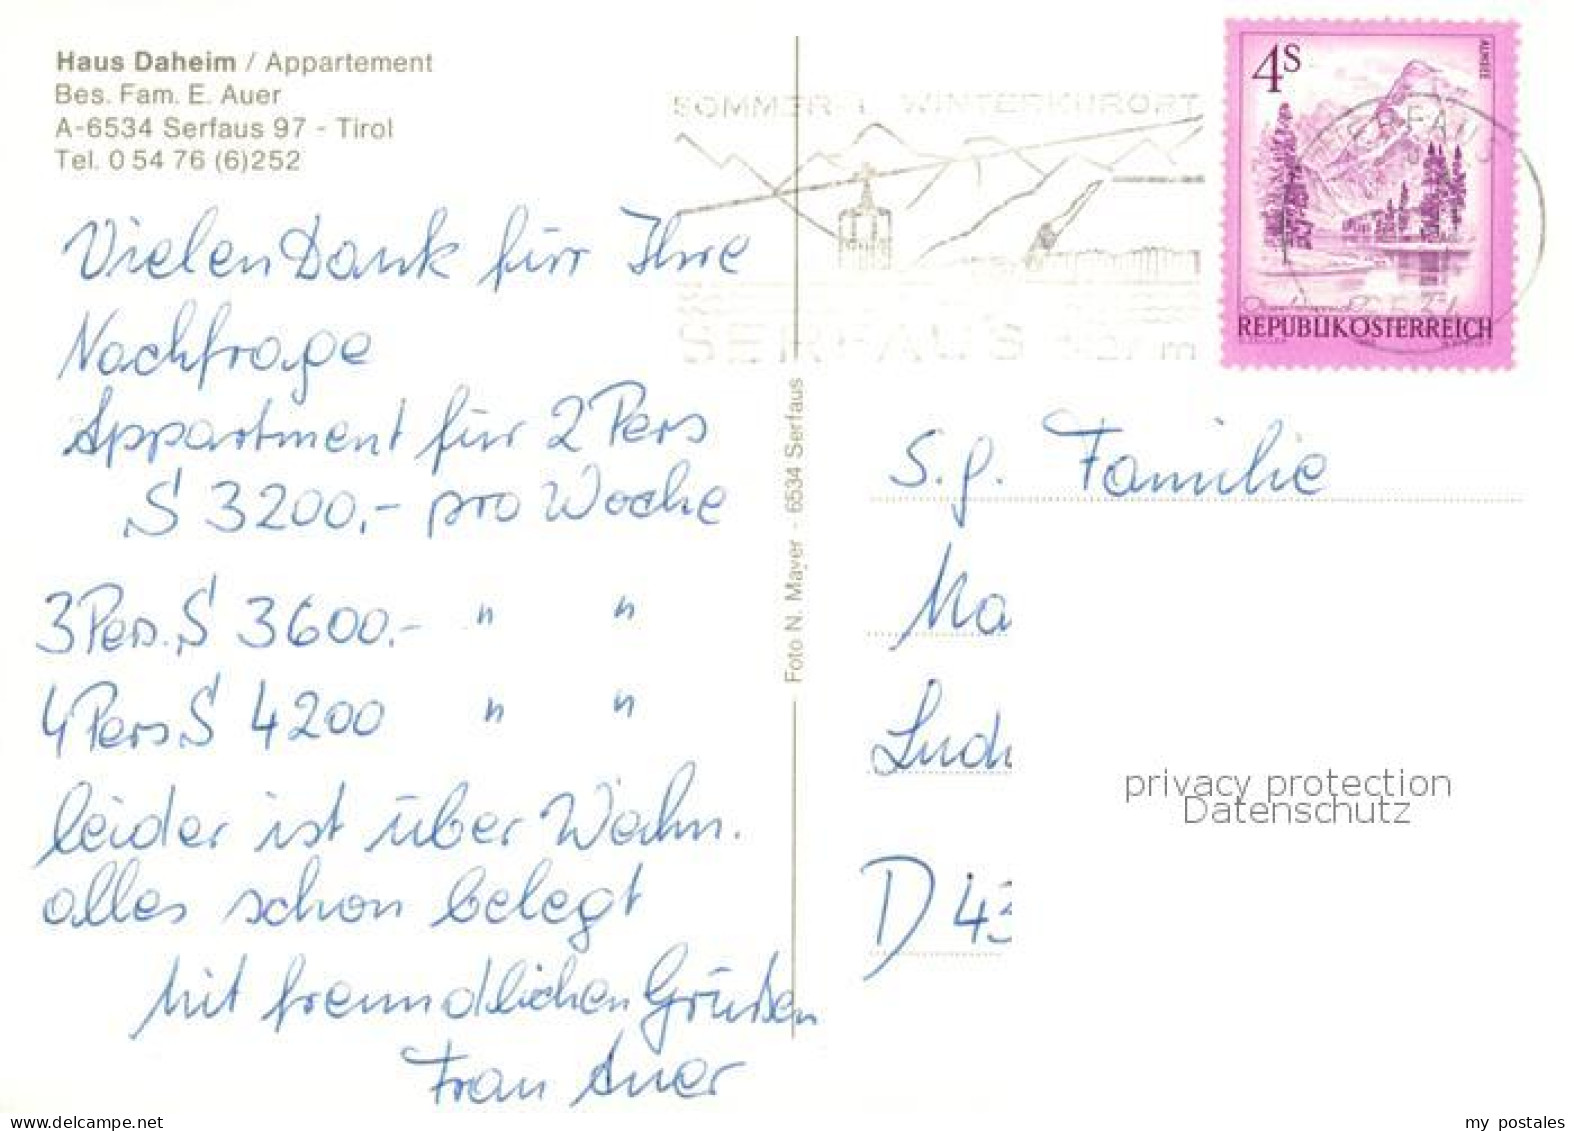 Haus Daheim / Appartement
Bes. Fam. E. Auer
A-6534 Serfaus 97 - Tirol
Tel. 0 54 76 (6)252
Vielen Dank für Ihre
Nachfrage
Appartment für 2 Pers
S 3200,- pro Woche
3 Pers. S 3600.- " "
4 Pers S 4200 " "
leider ist über Weihn.
alles schon belegt
Mit freundlichen Grüßen
Frau Auer
Foto N. Mayer - 6534 Serfaus
SOMMER- WINTERKURORT
SERFAUS
4S
ALMSEE
REPUBLIK ÖSTERREICH
S. g. Familie
Ma
Lud
D 43
privacy protection
Datenschutz
www.delcampe.net
my_postales